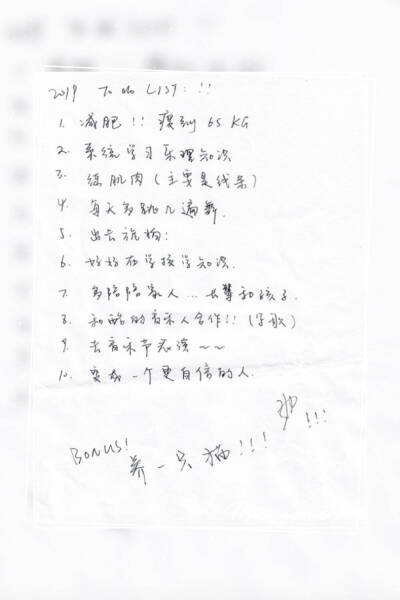 2019 To do LIST: !!
1. 减肥!! 瘦到 65 KG
2. 系统学习乐理知识
3. 练肌肉(主要是线条)
4. 每天多跳几遍舞.
5. 出去旅拍:
6. 好好在学校学知识.
7. 多陪陪家人...长辈和孩子.
8. 和酷的音乐人合作!! (写歌)
9. 去音乐节表演~~
10. 变成一个更自信的人.
BONUS!
养一只猫!!!
!!!